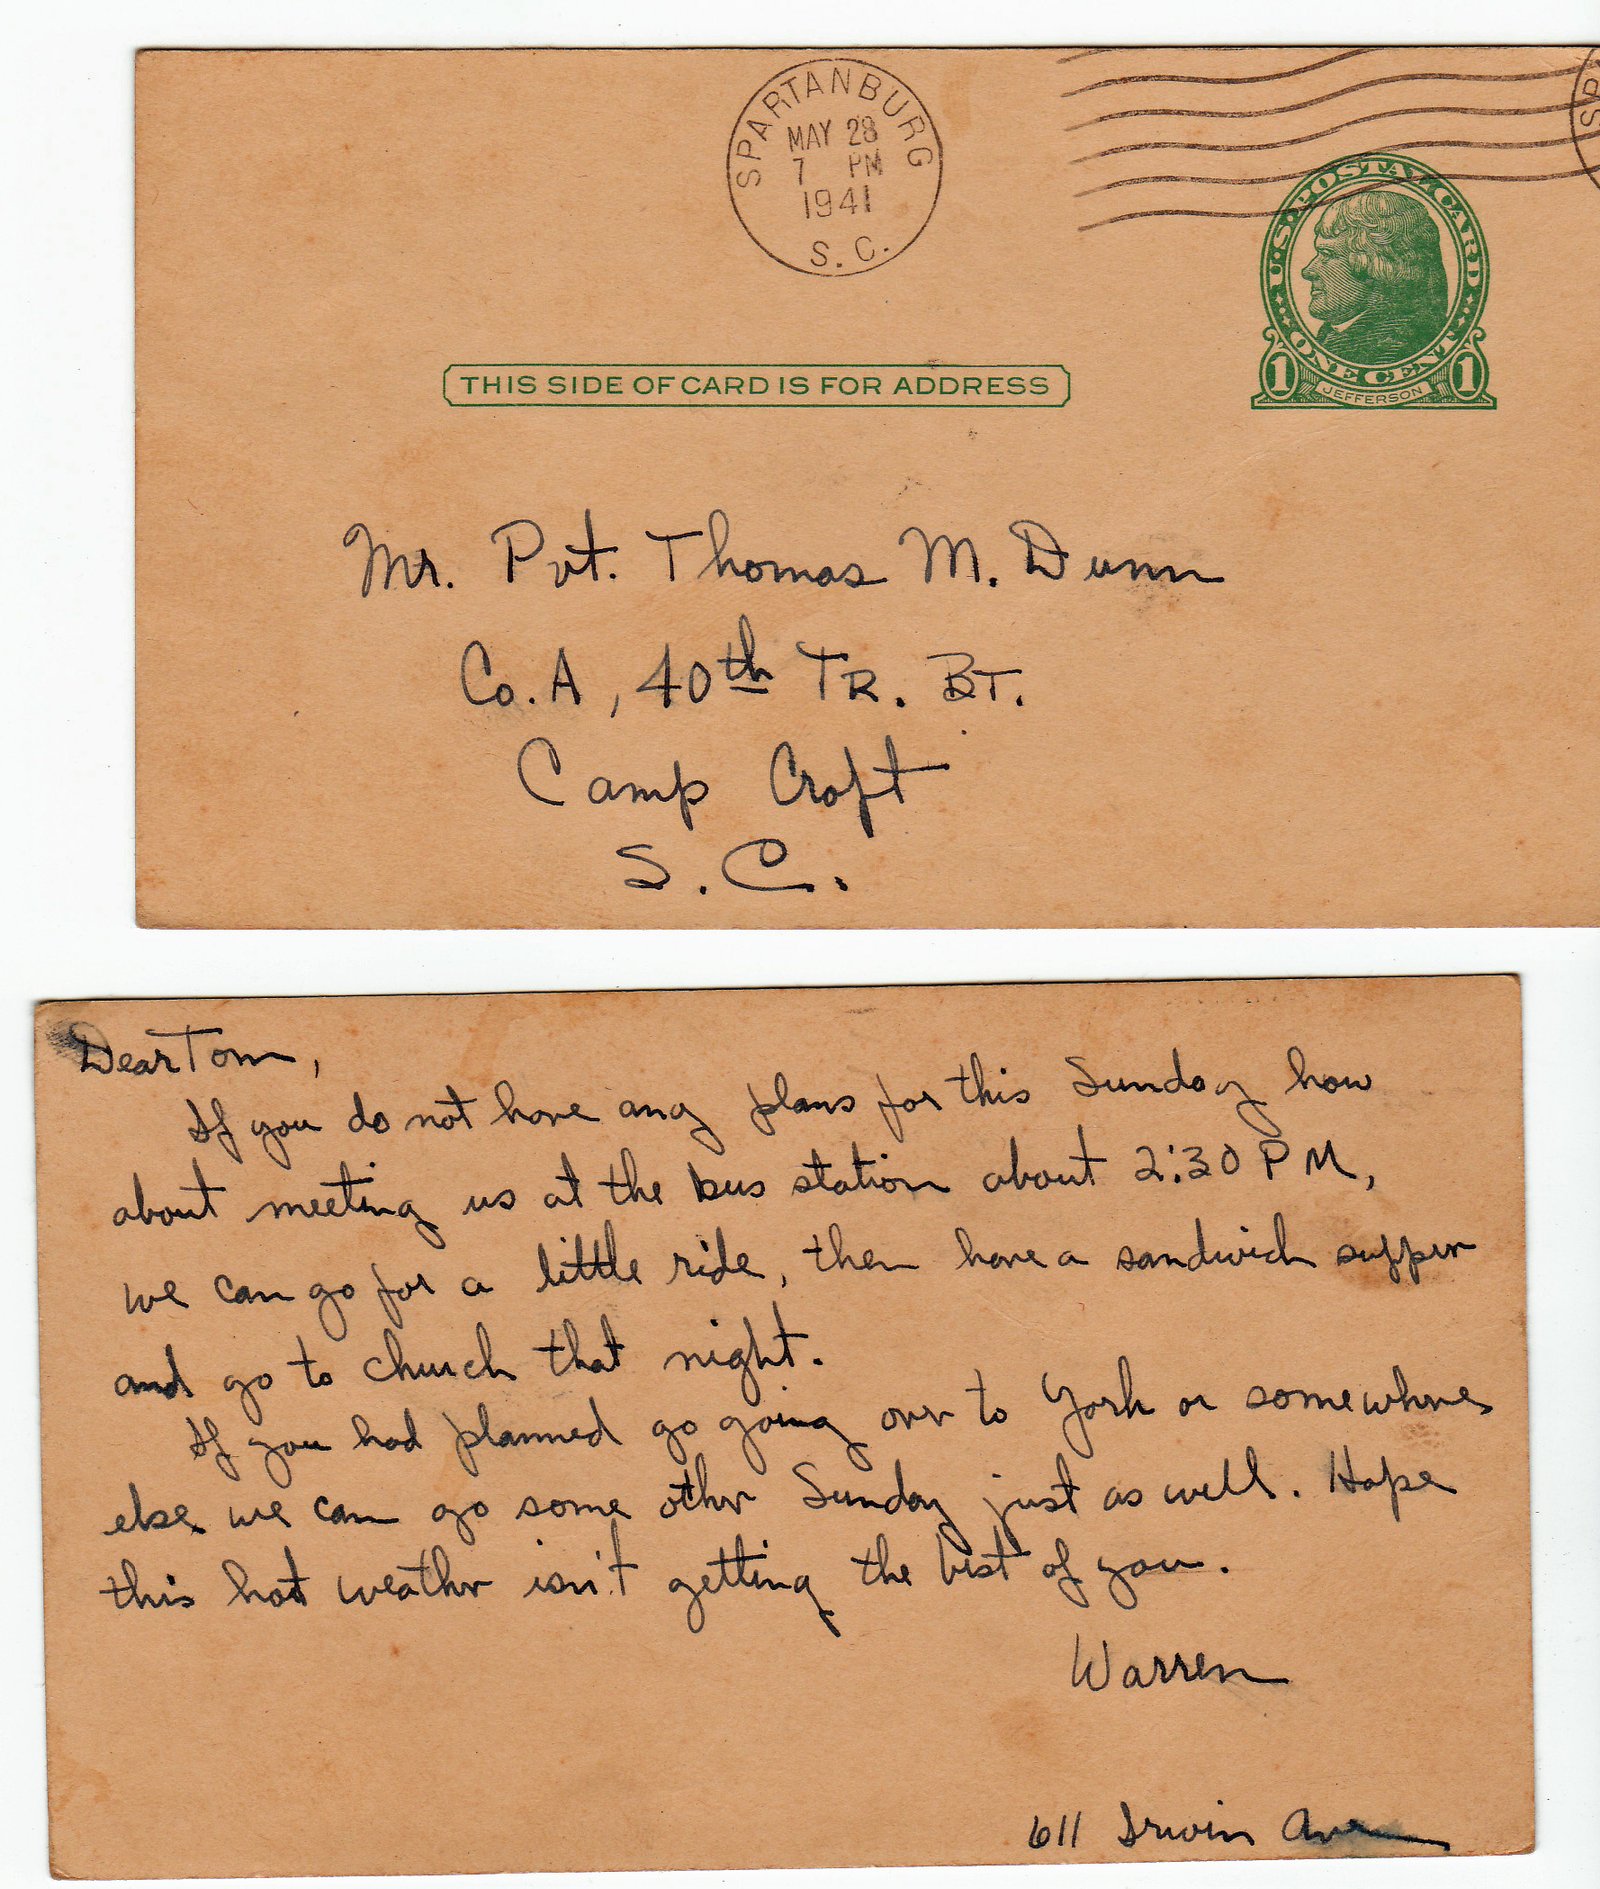 SPARTANBURG
MAY 28
7 PM
1941
S. C.
SP
U.S. POSTAL CARD
ONE CENT
1 JEFFERSON 1
THIS SIDE OF CARD IS FOR ADDRESS
Mr. Pvt. Thomas M. Dunn
Co. A, 40th TR. BT.
Camp Croft
S. C.
Dear Tom,
If you do not have any plans for this Sunday how
about meeting us at the bus station about 2:30 PM,
we can go for a little ride, then have a sandwich supper
and go to church that night.
If you had planned go going over to York or somewhere
else we can go some other Sunday just as well. Hope
this hot weather isn't getting the best of you.
Warren
611 Irwin Ave